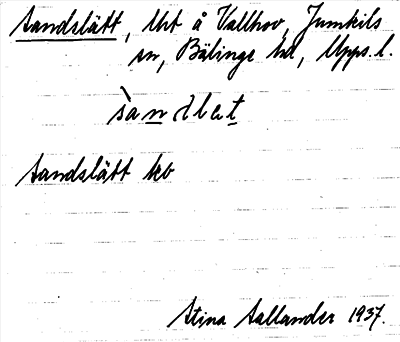 Sandslätt, Uht å Vallhov, Jumkils
sn, Bälinge hd, Upps. l.
sàndlet
Sandslätt kb
Stina Sallander 1937.